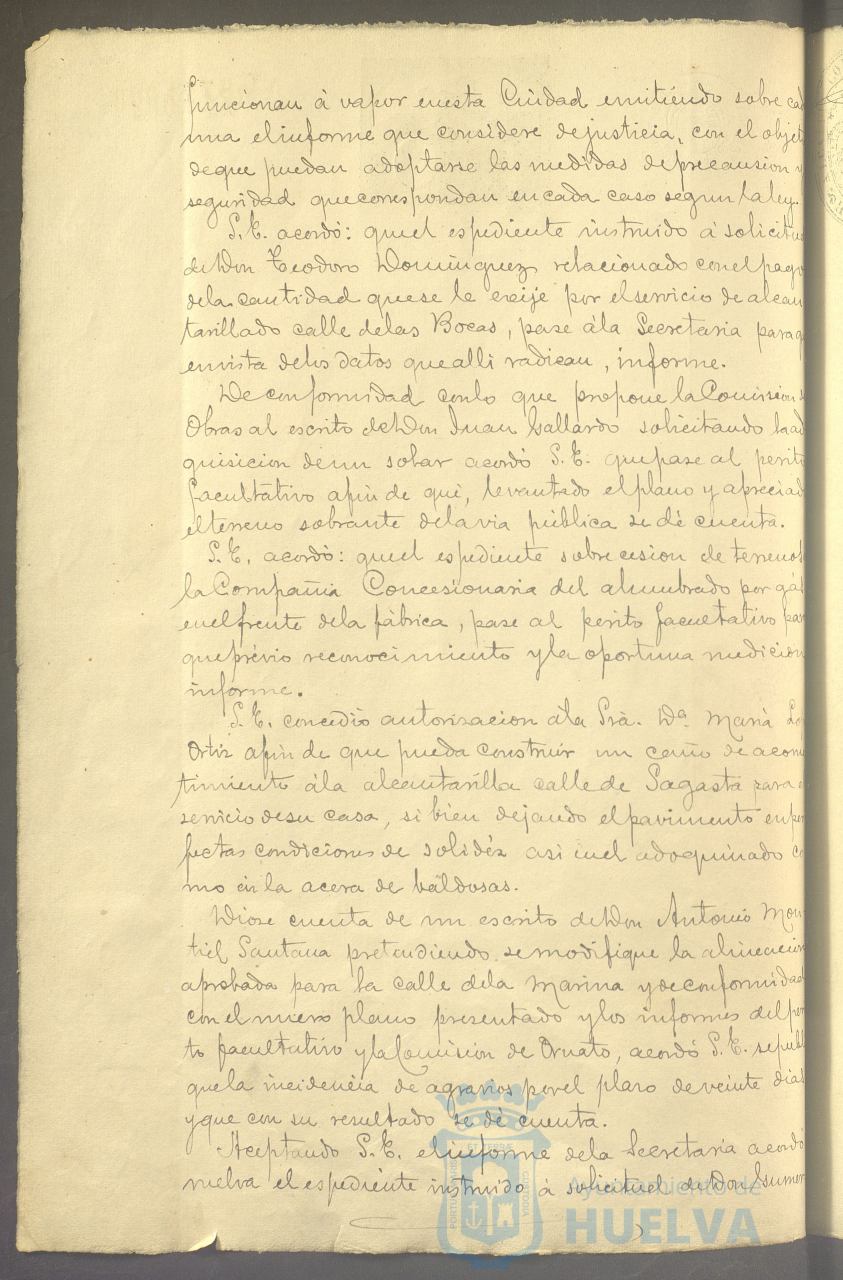 funcionan á vapor enesta Ciudad emitiendo sobre cad
una elinforme que considere dejusticia, con el objet
deque puedan adoptarse las medidas deprecausion y
seguridad quecorrespondan encada caso segun laley.
S. E. acordó: queel espediente instruido á solicitu
deDon Teodoro Dominguez relacionado conelpago
dela cantidad quese le exije por elservicio de alcan
tarillado calle delas Bocas, pase ála Secretaria para q
envista delos datos quealli radican, informe.
De conformidad conlo que propone laComision
Obras al escrito deDon Juan Gallardo solicitando laad
quisicion deun solar acordó S. E. quepase al perito
facultativo afin de que, levantado elplano y apreciad
elterreno sobrante delavia pública se dé cuenta.
S. E. acordó: queel espediente sobre cesion de terrenos
la Compañia Concesionaria del alumbrado por gás
enelfrente dela fábrica, pase al perito facultativo par
queprévio reconocimiento yla oportuna medicion
informe.
S. E. concedió autorizacion ála Srà. Dª Maria Lo
Ortiz afin de que pueda construir un caño de acome
timiento ála alcantarilla calle de Sagasta para e
servicio desu casa, si bien dejando elpavimento enper
fectas condiciones de solidéz asi enel adoquinado co
mo en la acera de baldosas.
Diose cuenta de un escrito deDon Antonio Mon
tiel Santana pretendiendo semodifique la alineacion
aprobada para la calle dela Marina ydeconformidad
con el nuevo plano presentado ylos informes delperi
to facultativo yla Comision de Ornato, acordó S. E. sepubli
quela incidencia de agravios porel plazo deveinte dias
yque con su resultado se dé cuenta.
Aceptando S. E. elinforme dela Secretaria acordó
vuelva el espediente instruido á solicitud deDon Gumer
Ayuntamiento de
HUELVA